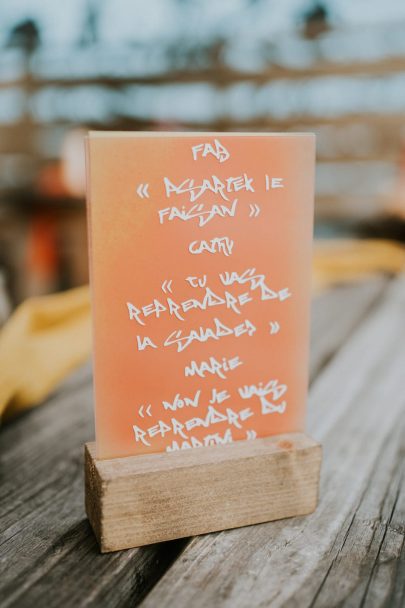 FAB
« ASARTEK LE
FAISAN »
CAMY
« TU VAS
REPRENDRE DE
LA SALADE? »
MARIE
« NON JE VAIS
REPRENDRE DU
MARTINI »